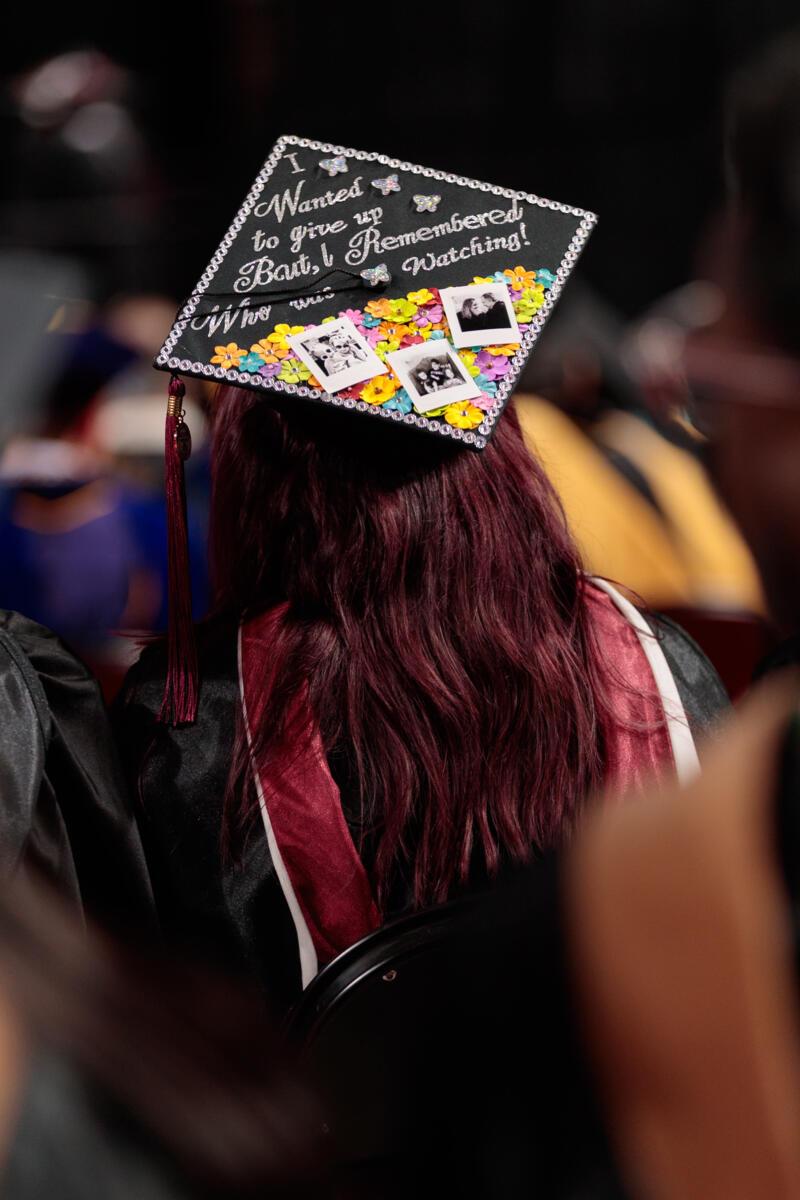 I
Wanted
to give up
But, I Remembered
Who was Watching!